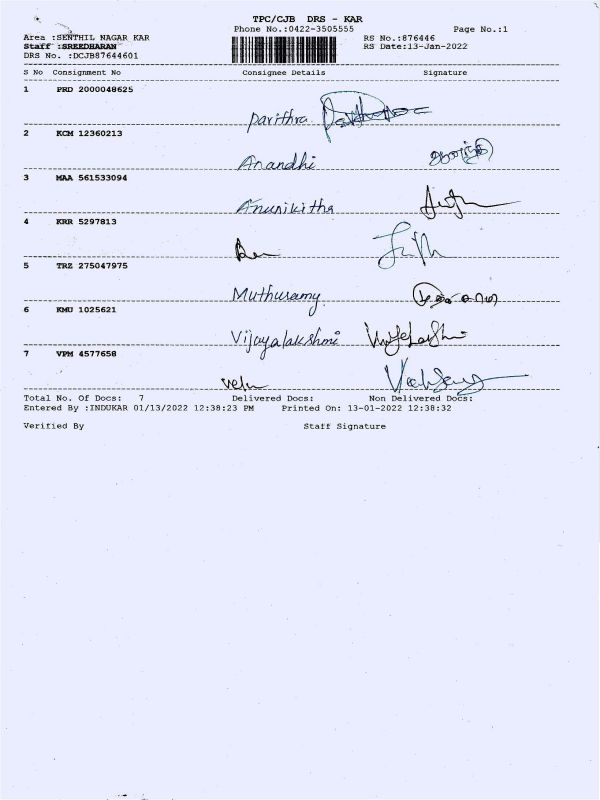 TPC/CJB DRS - KAR
Phone No.:0422-3505555 Page No.:1
Area :SENTHIL NAGAR KAR RS No.:876446
Staff :SREEDHARAN RS Date:13-Jan-2022
DRS No. :DCJB87644601
S No Consignment No Consignee Details Signature
1 PRD 2000048625
Pavithra
2 KCM 12360213
Anandhi
3 MAA 561533094
Anunikitha
4 KRR 5297813
5 TRZ 275047975
Muthuramy
6 KMU 1025621
Vijayalakshmi
7 VPM 4577658
velu
Total No. Of Docs: 7 Delivered Docs: Non Delivered Docs:
Entered By :INDUKAR 01/13/2022 12:38:23 PM Printed On: 13-01-2022 12:38:32
Verified By Staff Signature